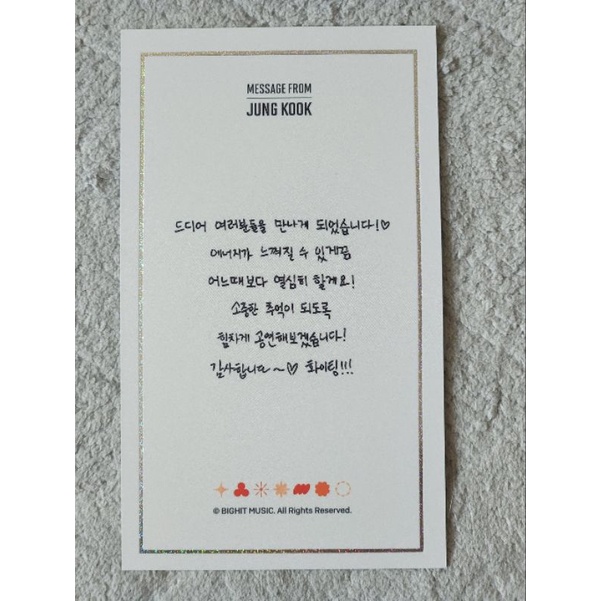 MESSAGE FROM
JUNG KOOK
드디어 여러분들을 만나게 되었습니다!♡
에너지가 느껴질 수 있게끔
어느때보다 열심히 할게요!
소중한 추억이 되도록
힘차게 공연해보겠습니다!
감사합니다~♡ 화이팅!!!
© BIGHIT MUSIC. All Rights Reserved.